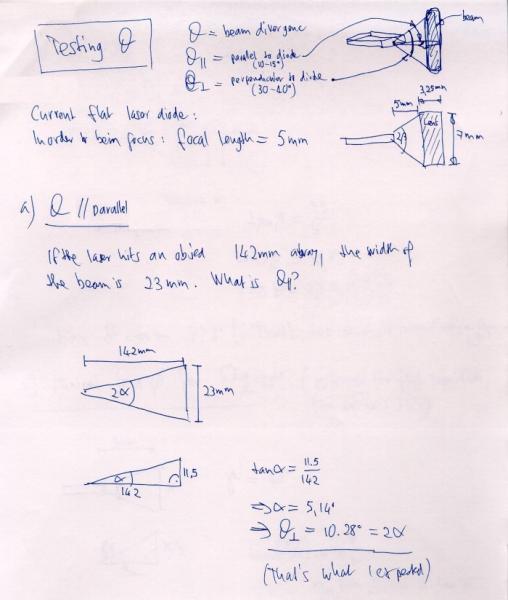 Testing θ
θ = beam divergence
θ∥ = parallel to diode
(10-15°)
θ⊥ = perpendicular to diode
(30-40°)
beam
Current flat laser diode:
In order to beim focus: focal length = 5mm
5mm
3,25mm
Lens
7mm
a) θ // parallel
If the laser hits an object 142mm away, the width of
the beam is 23mm. What is θ∥?
142mm
2α
23mm
α
11.5
142
tanα = 11.5/142
⇒ α = 5,14°
⇒ θ⊥ = 10.28° = 2α
(That's what I expected)